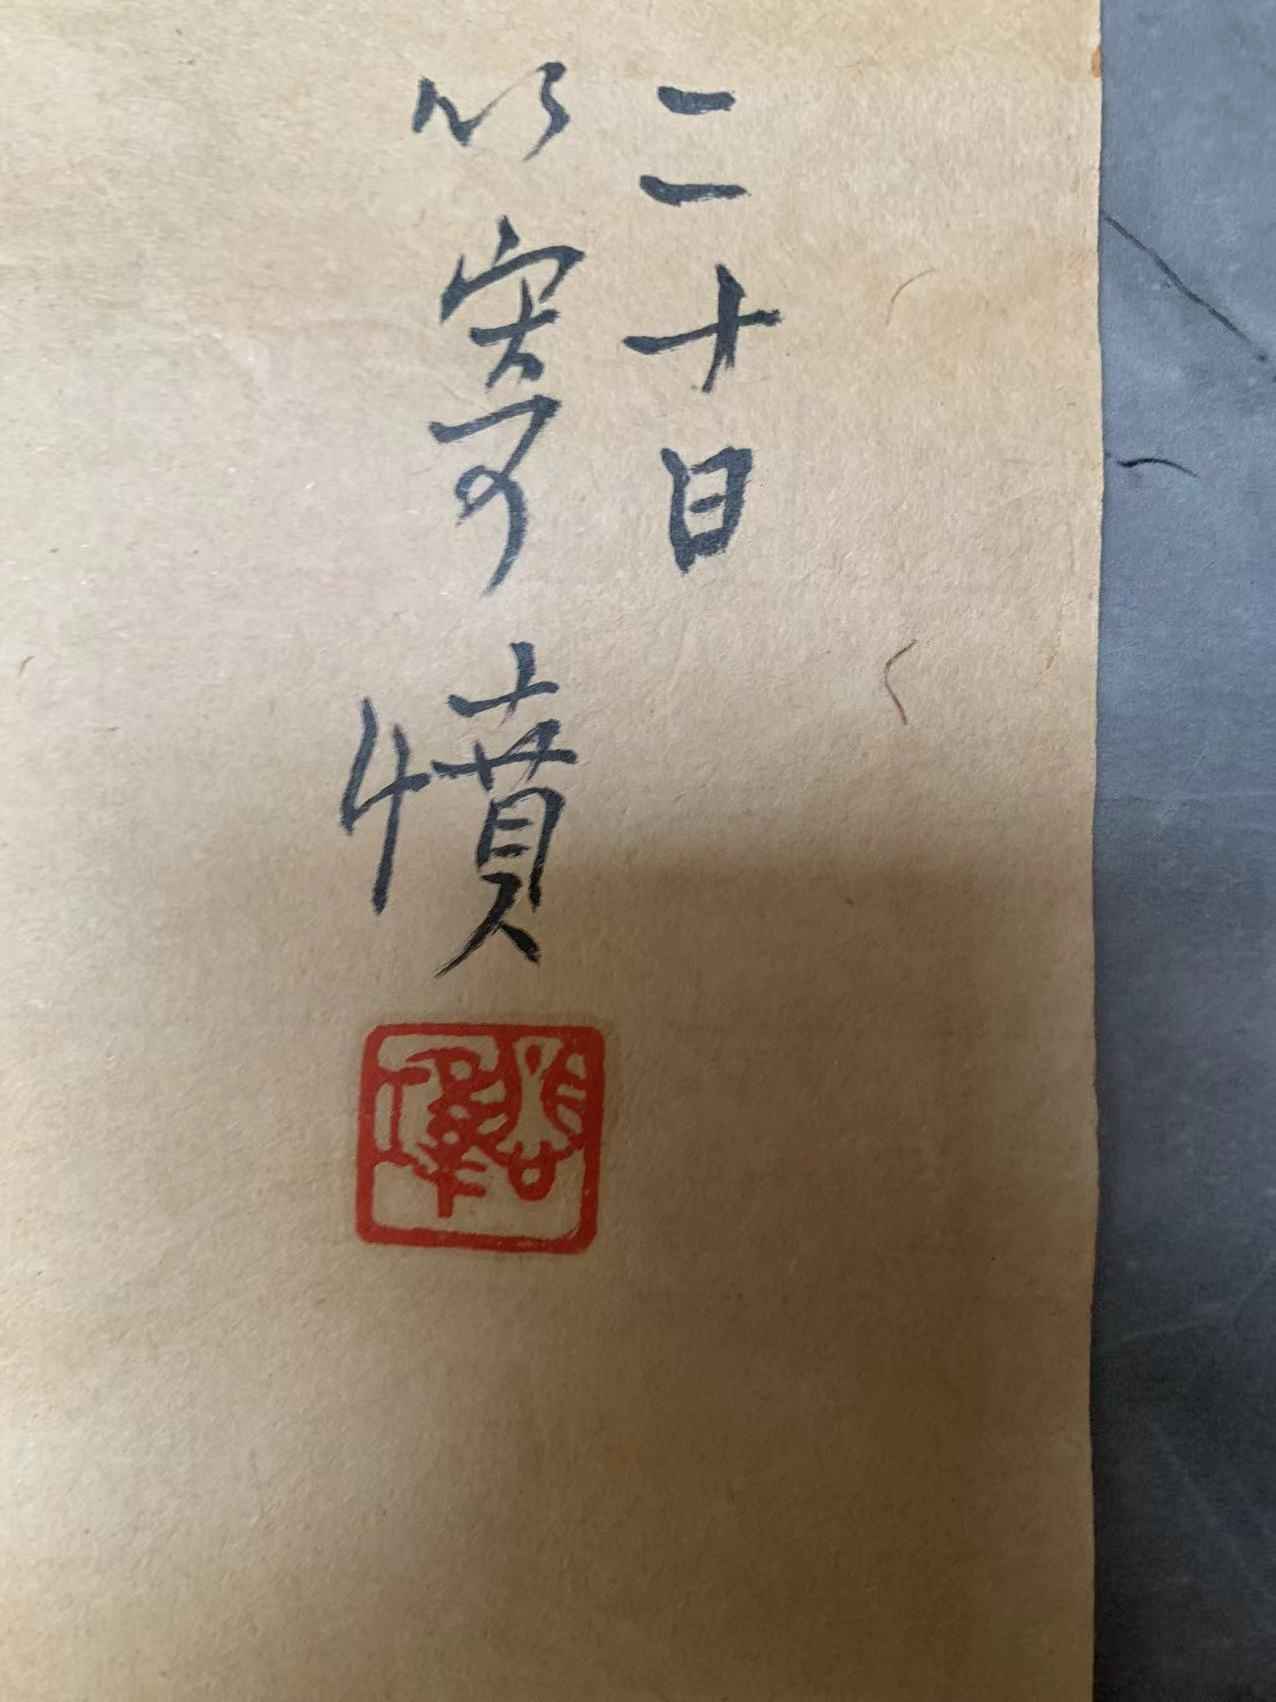 二十日
以寄憤